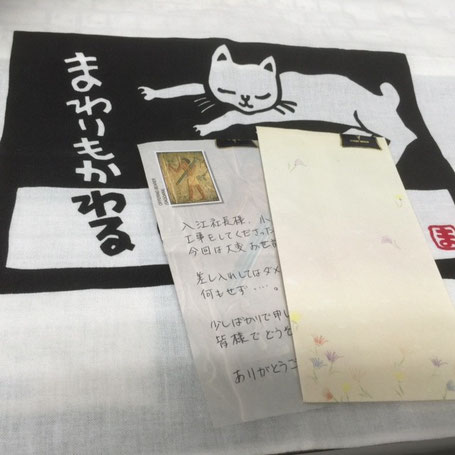 まわりもかわる
入江社長様、小
工事をしてくださった
今回は大変お世
差し入れしてはダメ
何もせず・・・。
少しばかりで申し
皆様でどうぞ
ありがとうご
ま